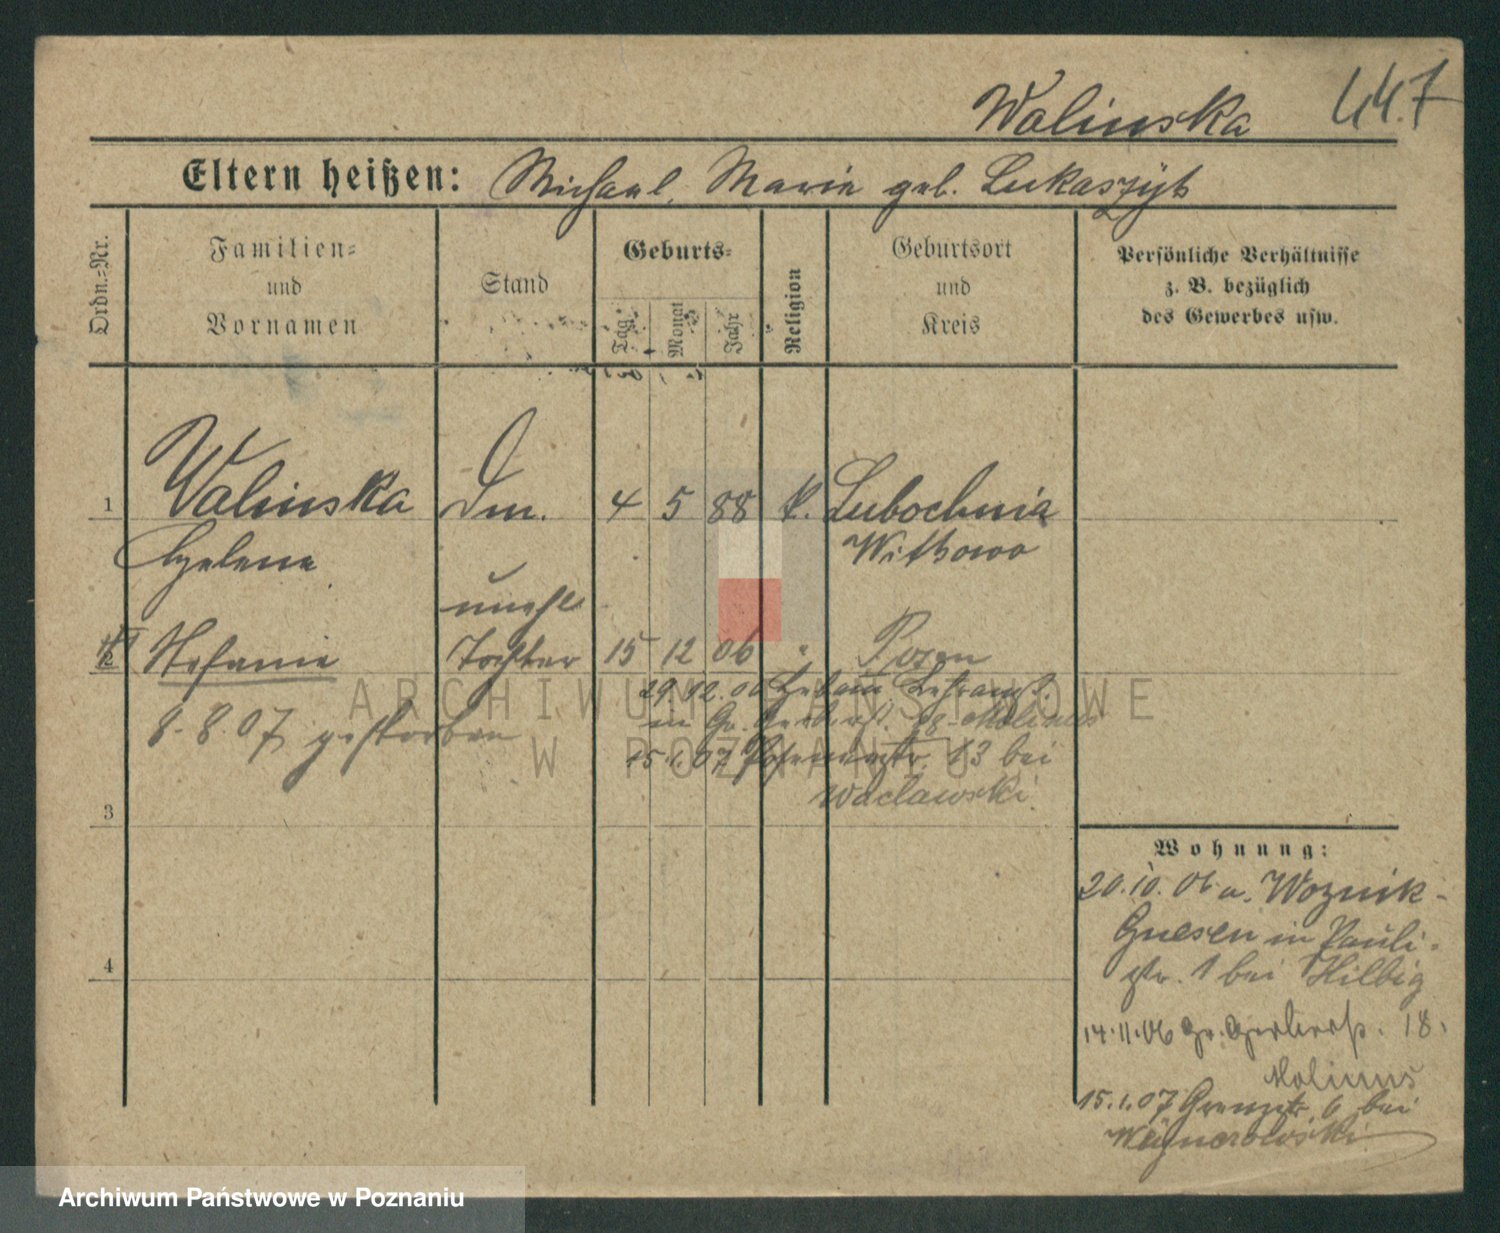 Walinska 447
Eltern heißen: Michael, Marie geb. Lukaszyk
Ordn.=Nr.
Familien=
und
Vornamen
Stand
Geburts=
Tag
Monat
Jahr
Religion
Geburtsort
und
Kreis
Persönliche Verhältnisse
z. B. bezüglich
des Gewerbes usw.
1 Walinska Dm. 4 5 88 k. Lubochnia
Helene Witkowo
unehl
2 Stefanie Tochter 15 12 06 " Posen
29.12.06 Hebam
in Gr. Gerberst. 18 Molinus
8.8.07 gestorben
15.1.07 13 bei
Waclawski
3
4
Wohnung:
20.10.06 a. Woznik-
Gnesen in Pauli-
str. 1 bei Hilbig
14.11.06 Gr. Gerberst. 18.
Molinus
15.1.07 Grenzstr. 6 bei
Wegnerowski
ARCHIWUM PAŃSTWOWE
W POZNANIU
Archiwum Państwowe w Poznaniu